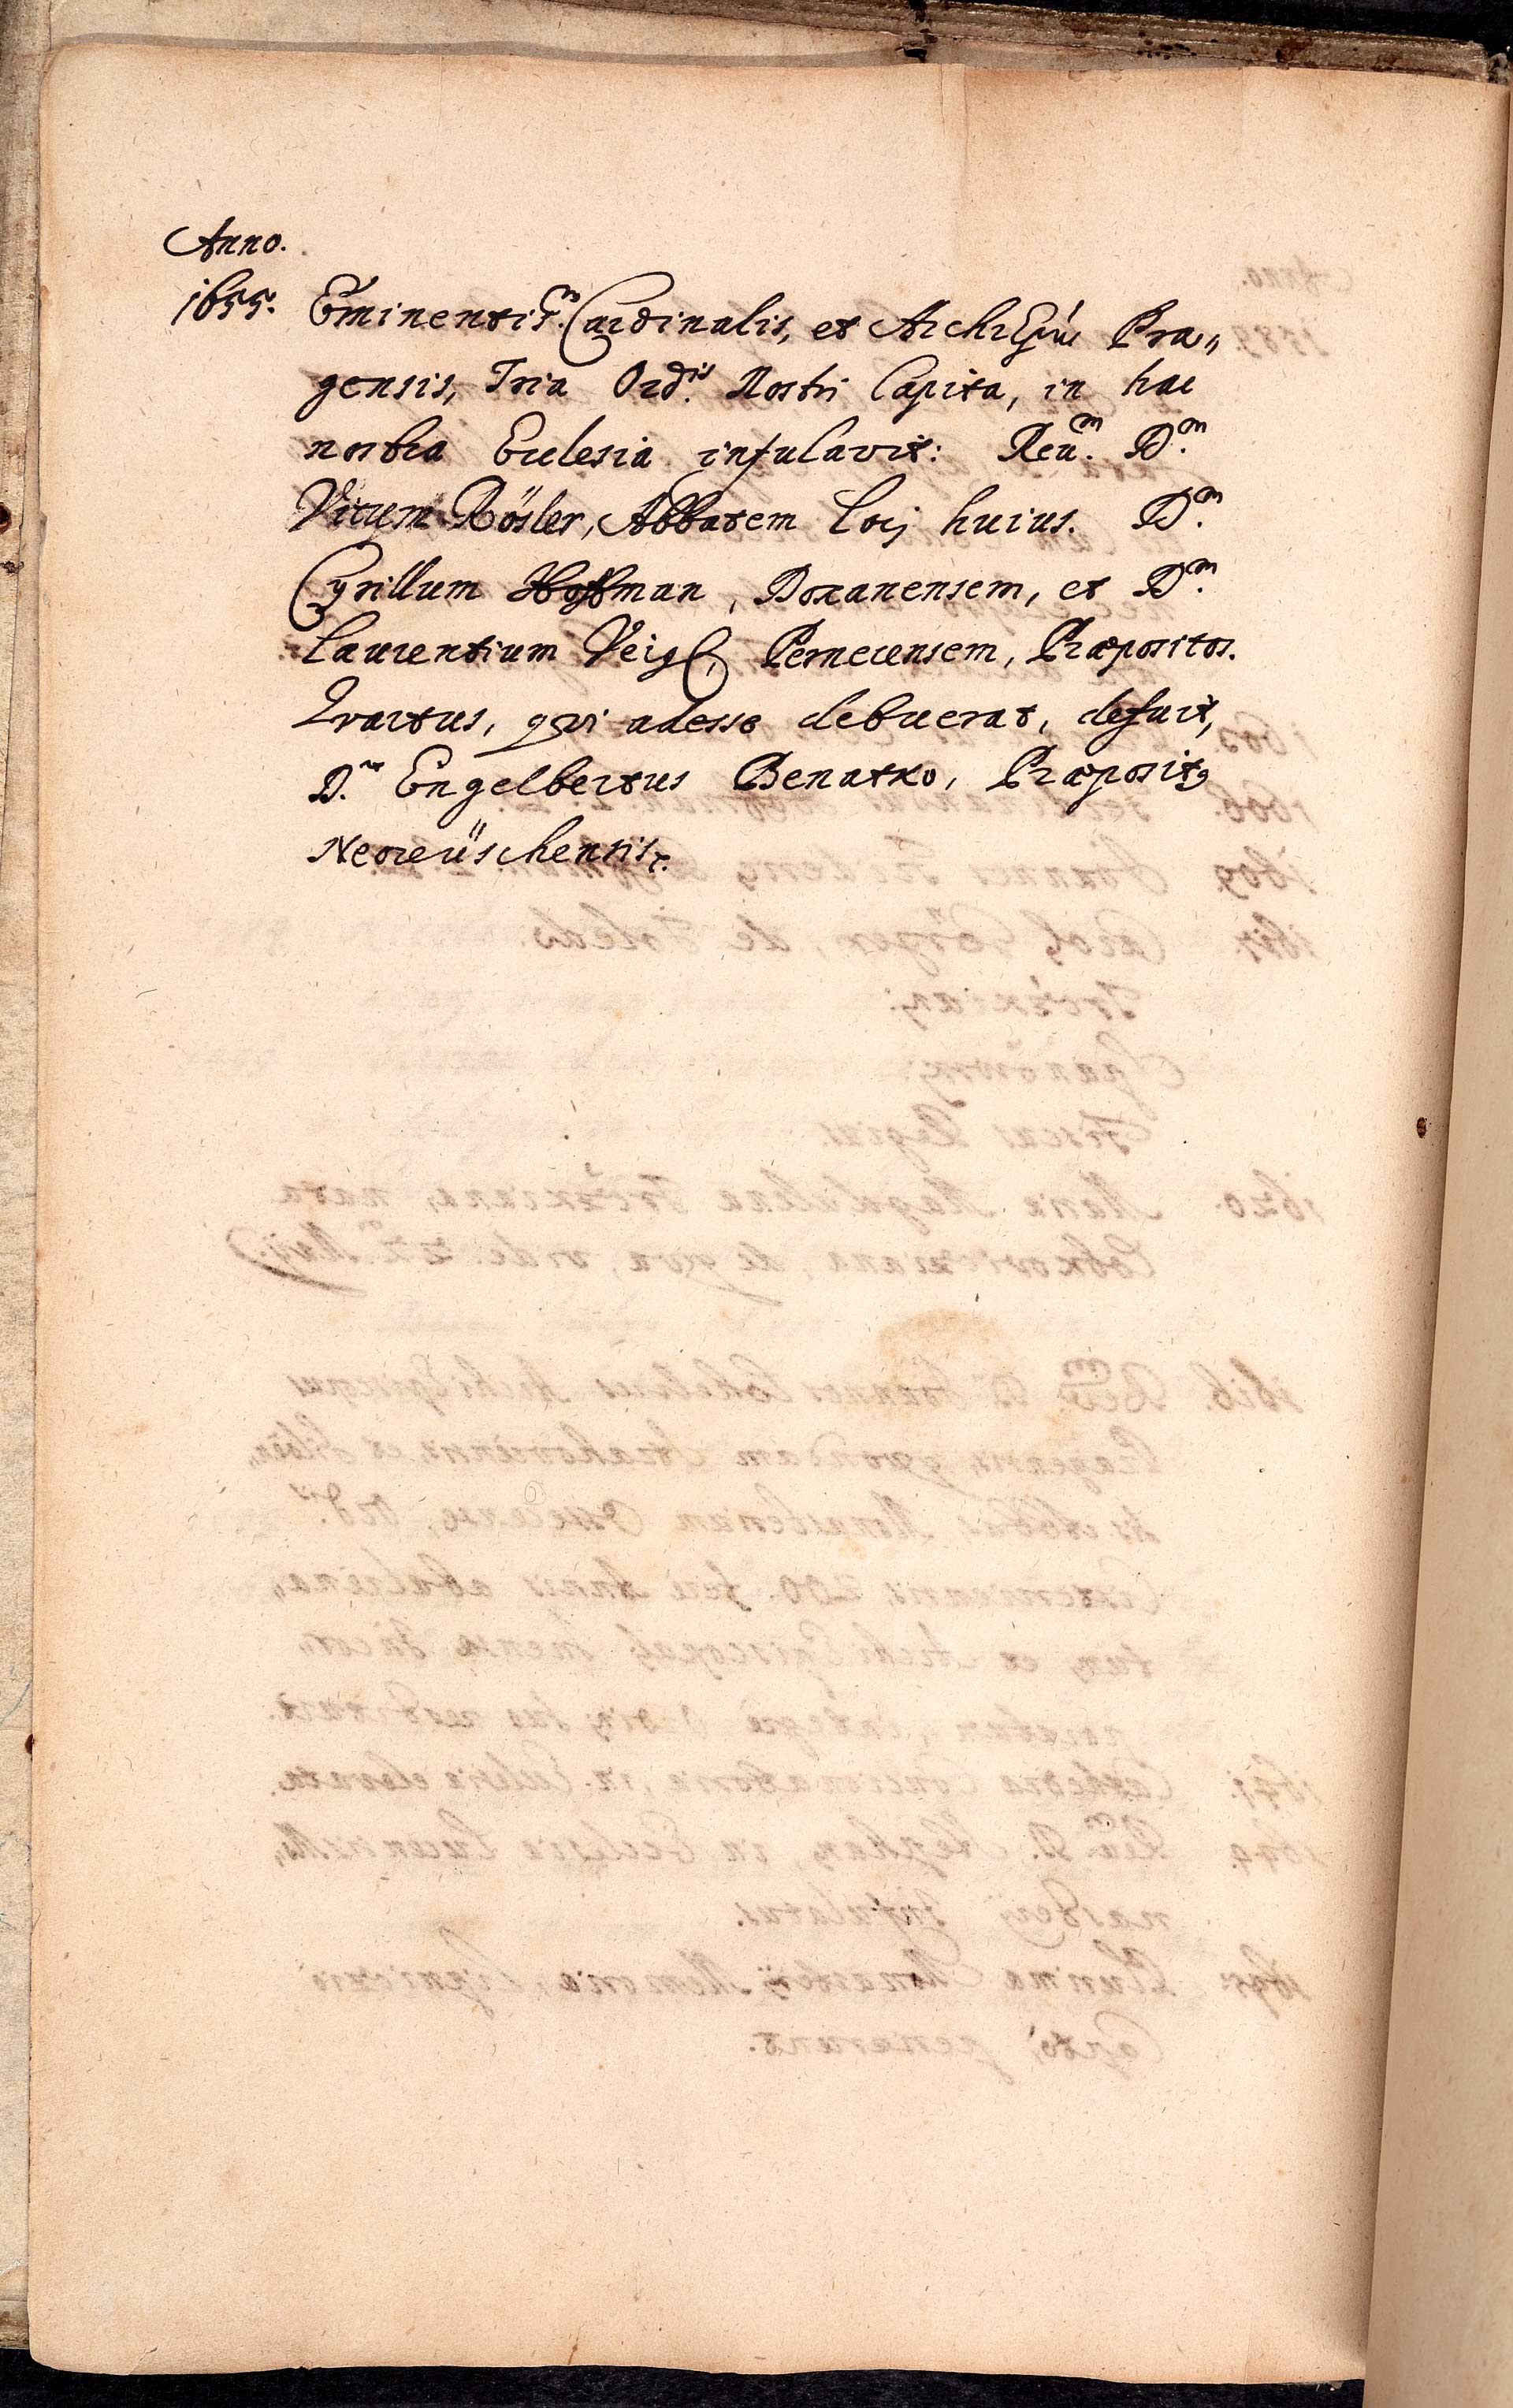 Anno.
1655. Eminentis.m Cardinalis, et ArchiEpũs Pra„
gensis, Tria Ord.is Nostri Capita, in hac
nostra Ecclesia infulavit: Reu.m D.m
Vitum Rösler, Abbatem locj huius. D.m
Cyrillum Hoffman, Doxanensem, et D.m
Laurentium Veigl, Pernecensem, Præpositos.
Qvartus, qvi adesse debuerat, defuit,
D.ns Engelbertus Benatko, Præpositq
Neoreüschensis.